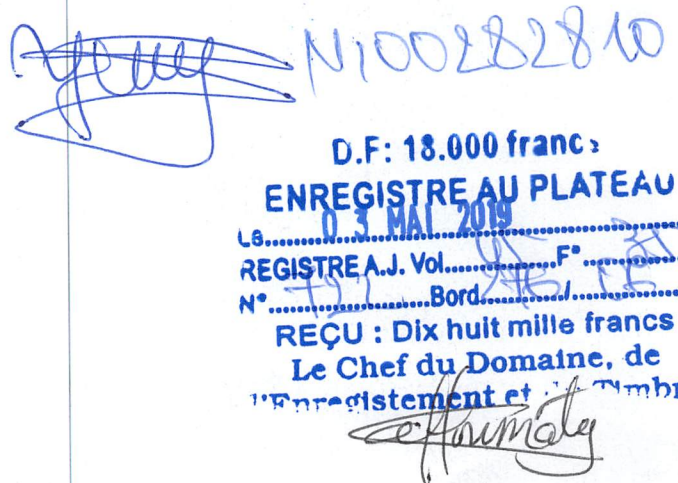 N 00282810
D.F: 18.000 francs
ENREGISTRE AU PLATEAU
Le.......... 03 MAI 2019
REGISTRE A.J. Vol.......... 45 F°..........
N°.......... Bord........../..........
REÇU : Dix huit mille francs
Le Chef du Domaine, de
l'Enregistement et du Timbre